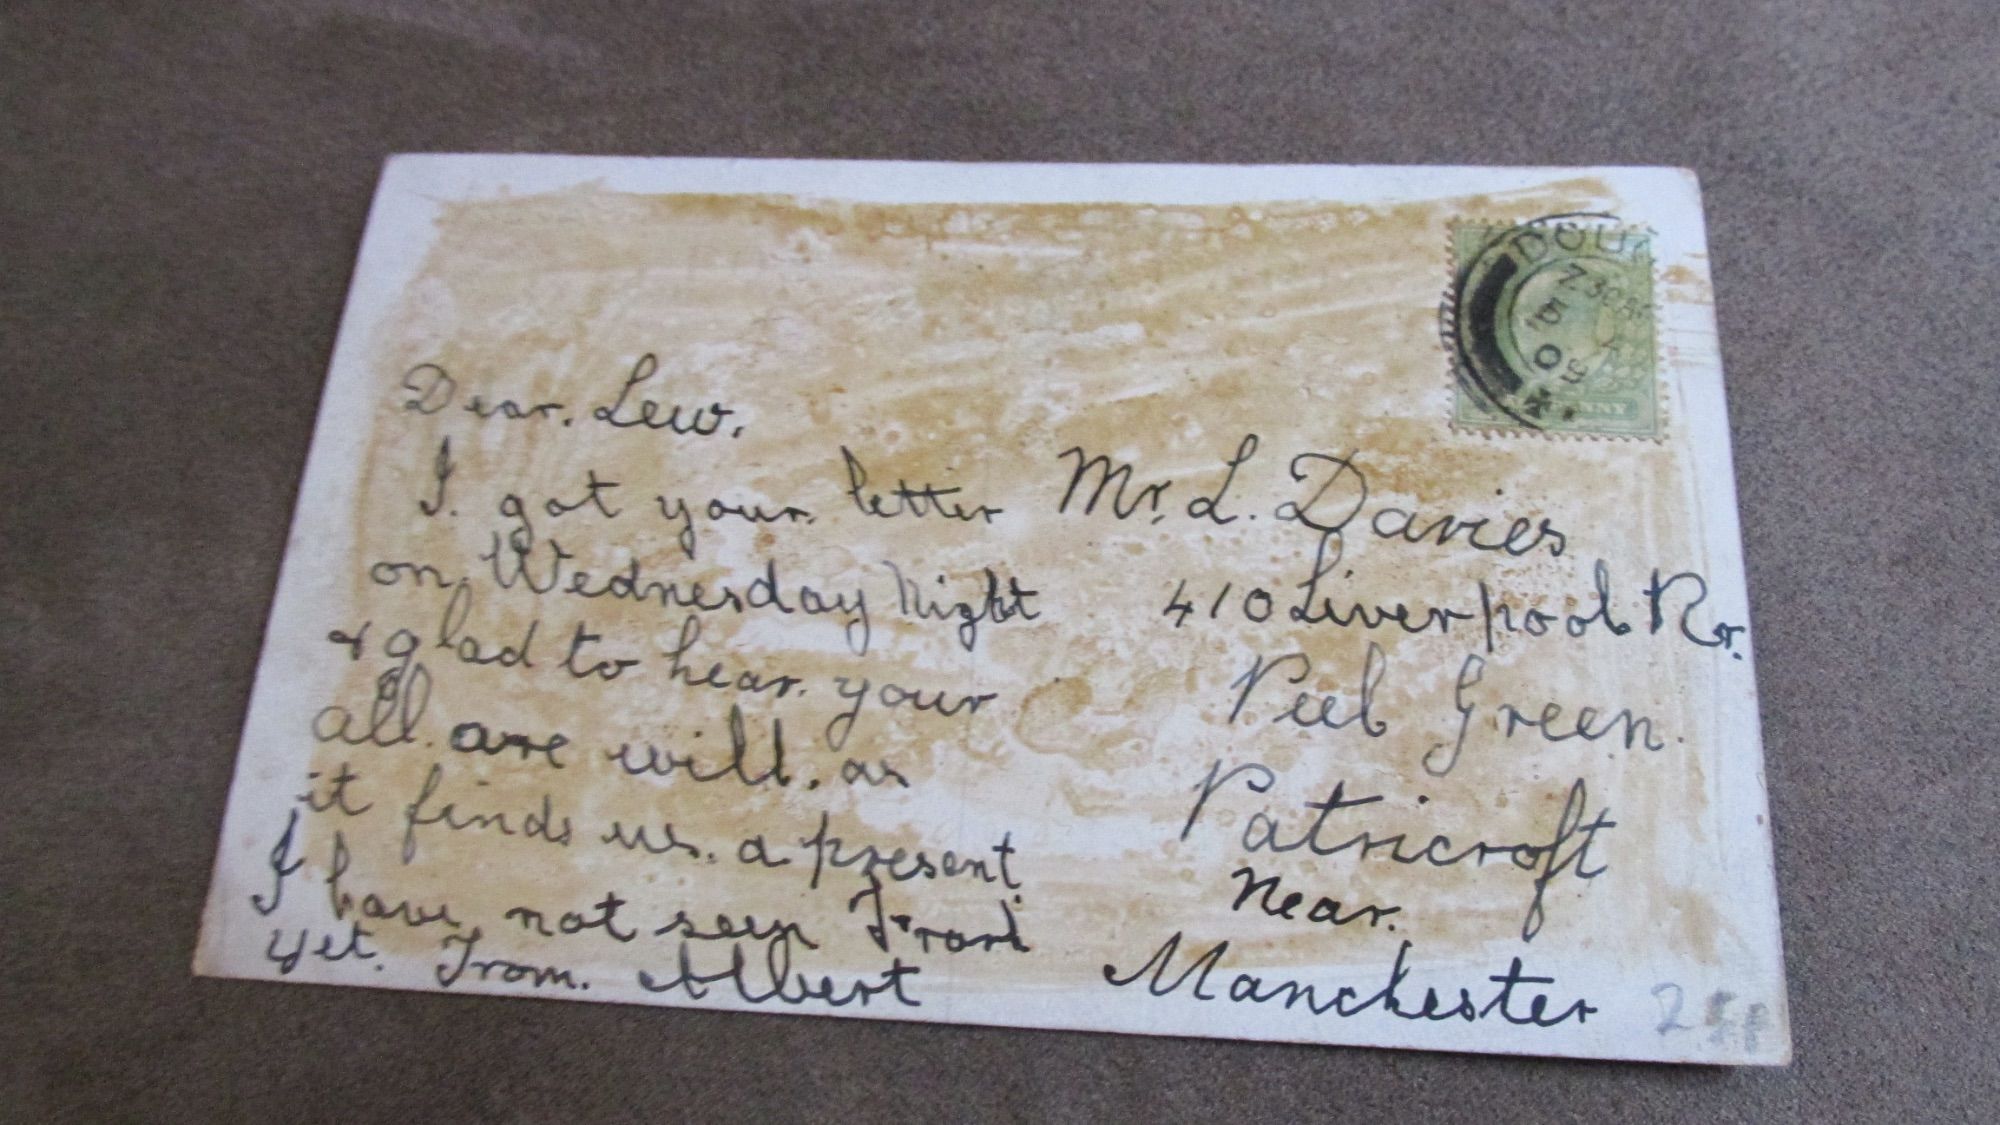 Dear. Lew.
I. got your. letter
on. Wednesday Night
& glad to hear. your
all. are will. as
it finds us. a present
I have not seen Frank
yet. From. Albert
Mr. L. Davies
410 Liverpool Rr.
Peel Green.
Patricroft
Near.
Manchester
DOUG
7.30 AM
25P